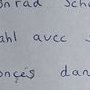 onrad Sch
ahl avec
onces dan